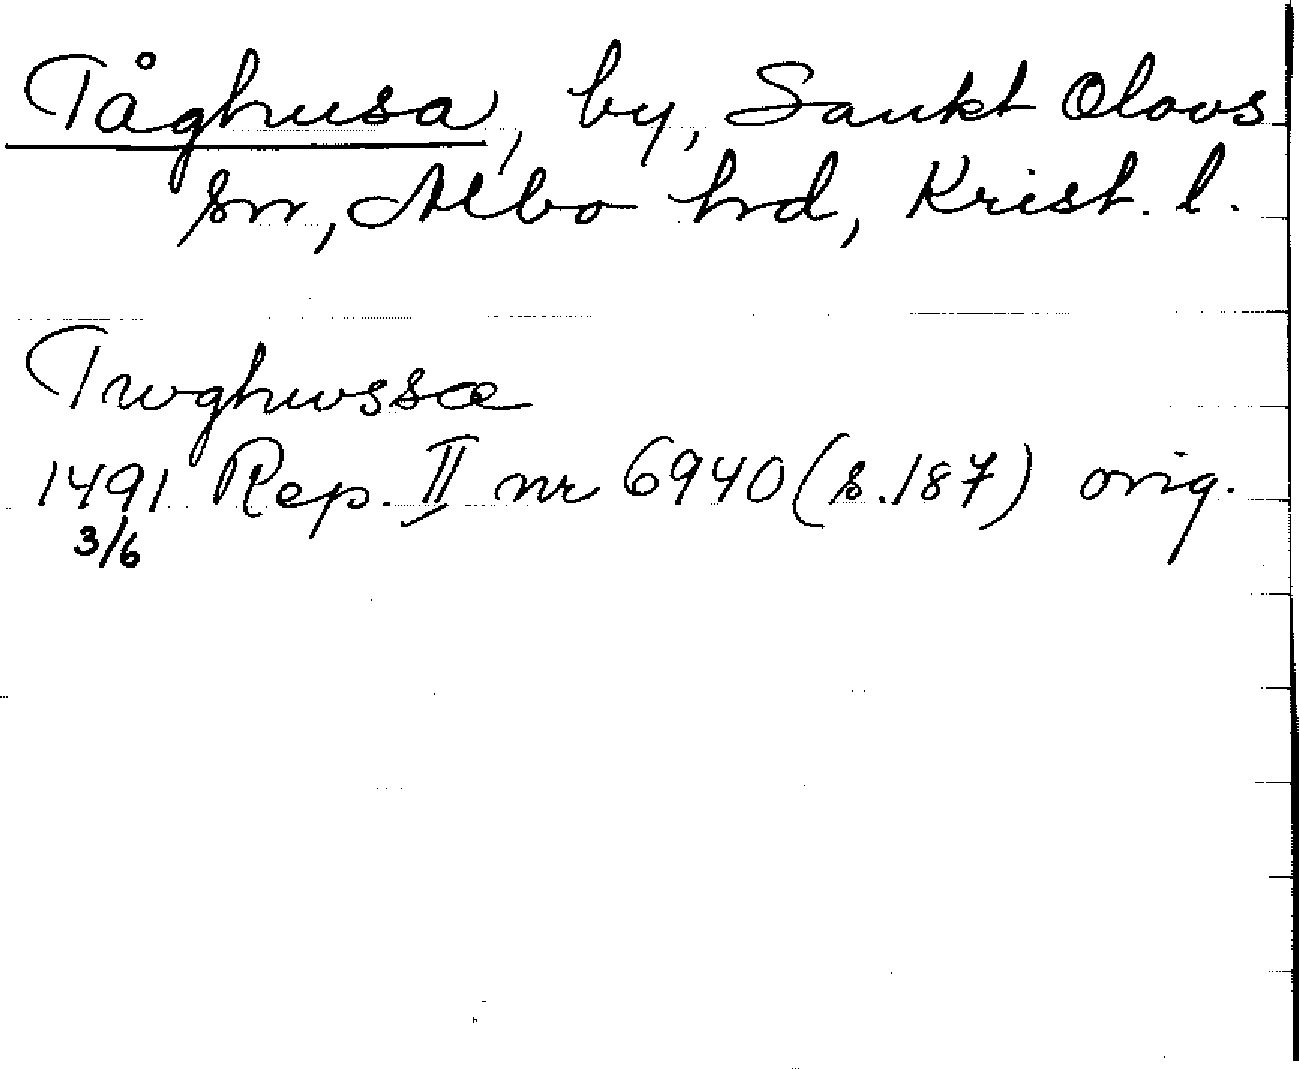 Tåghusa, by, Sankt Olovs
sn, Albo hrd, Krist. l.
Twghwssæ
1491 Rep. II nr 6940 (s. 187) orig.
3/6